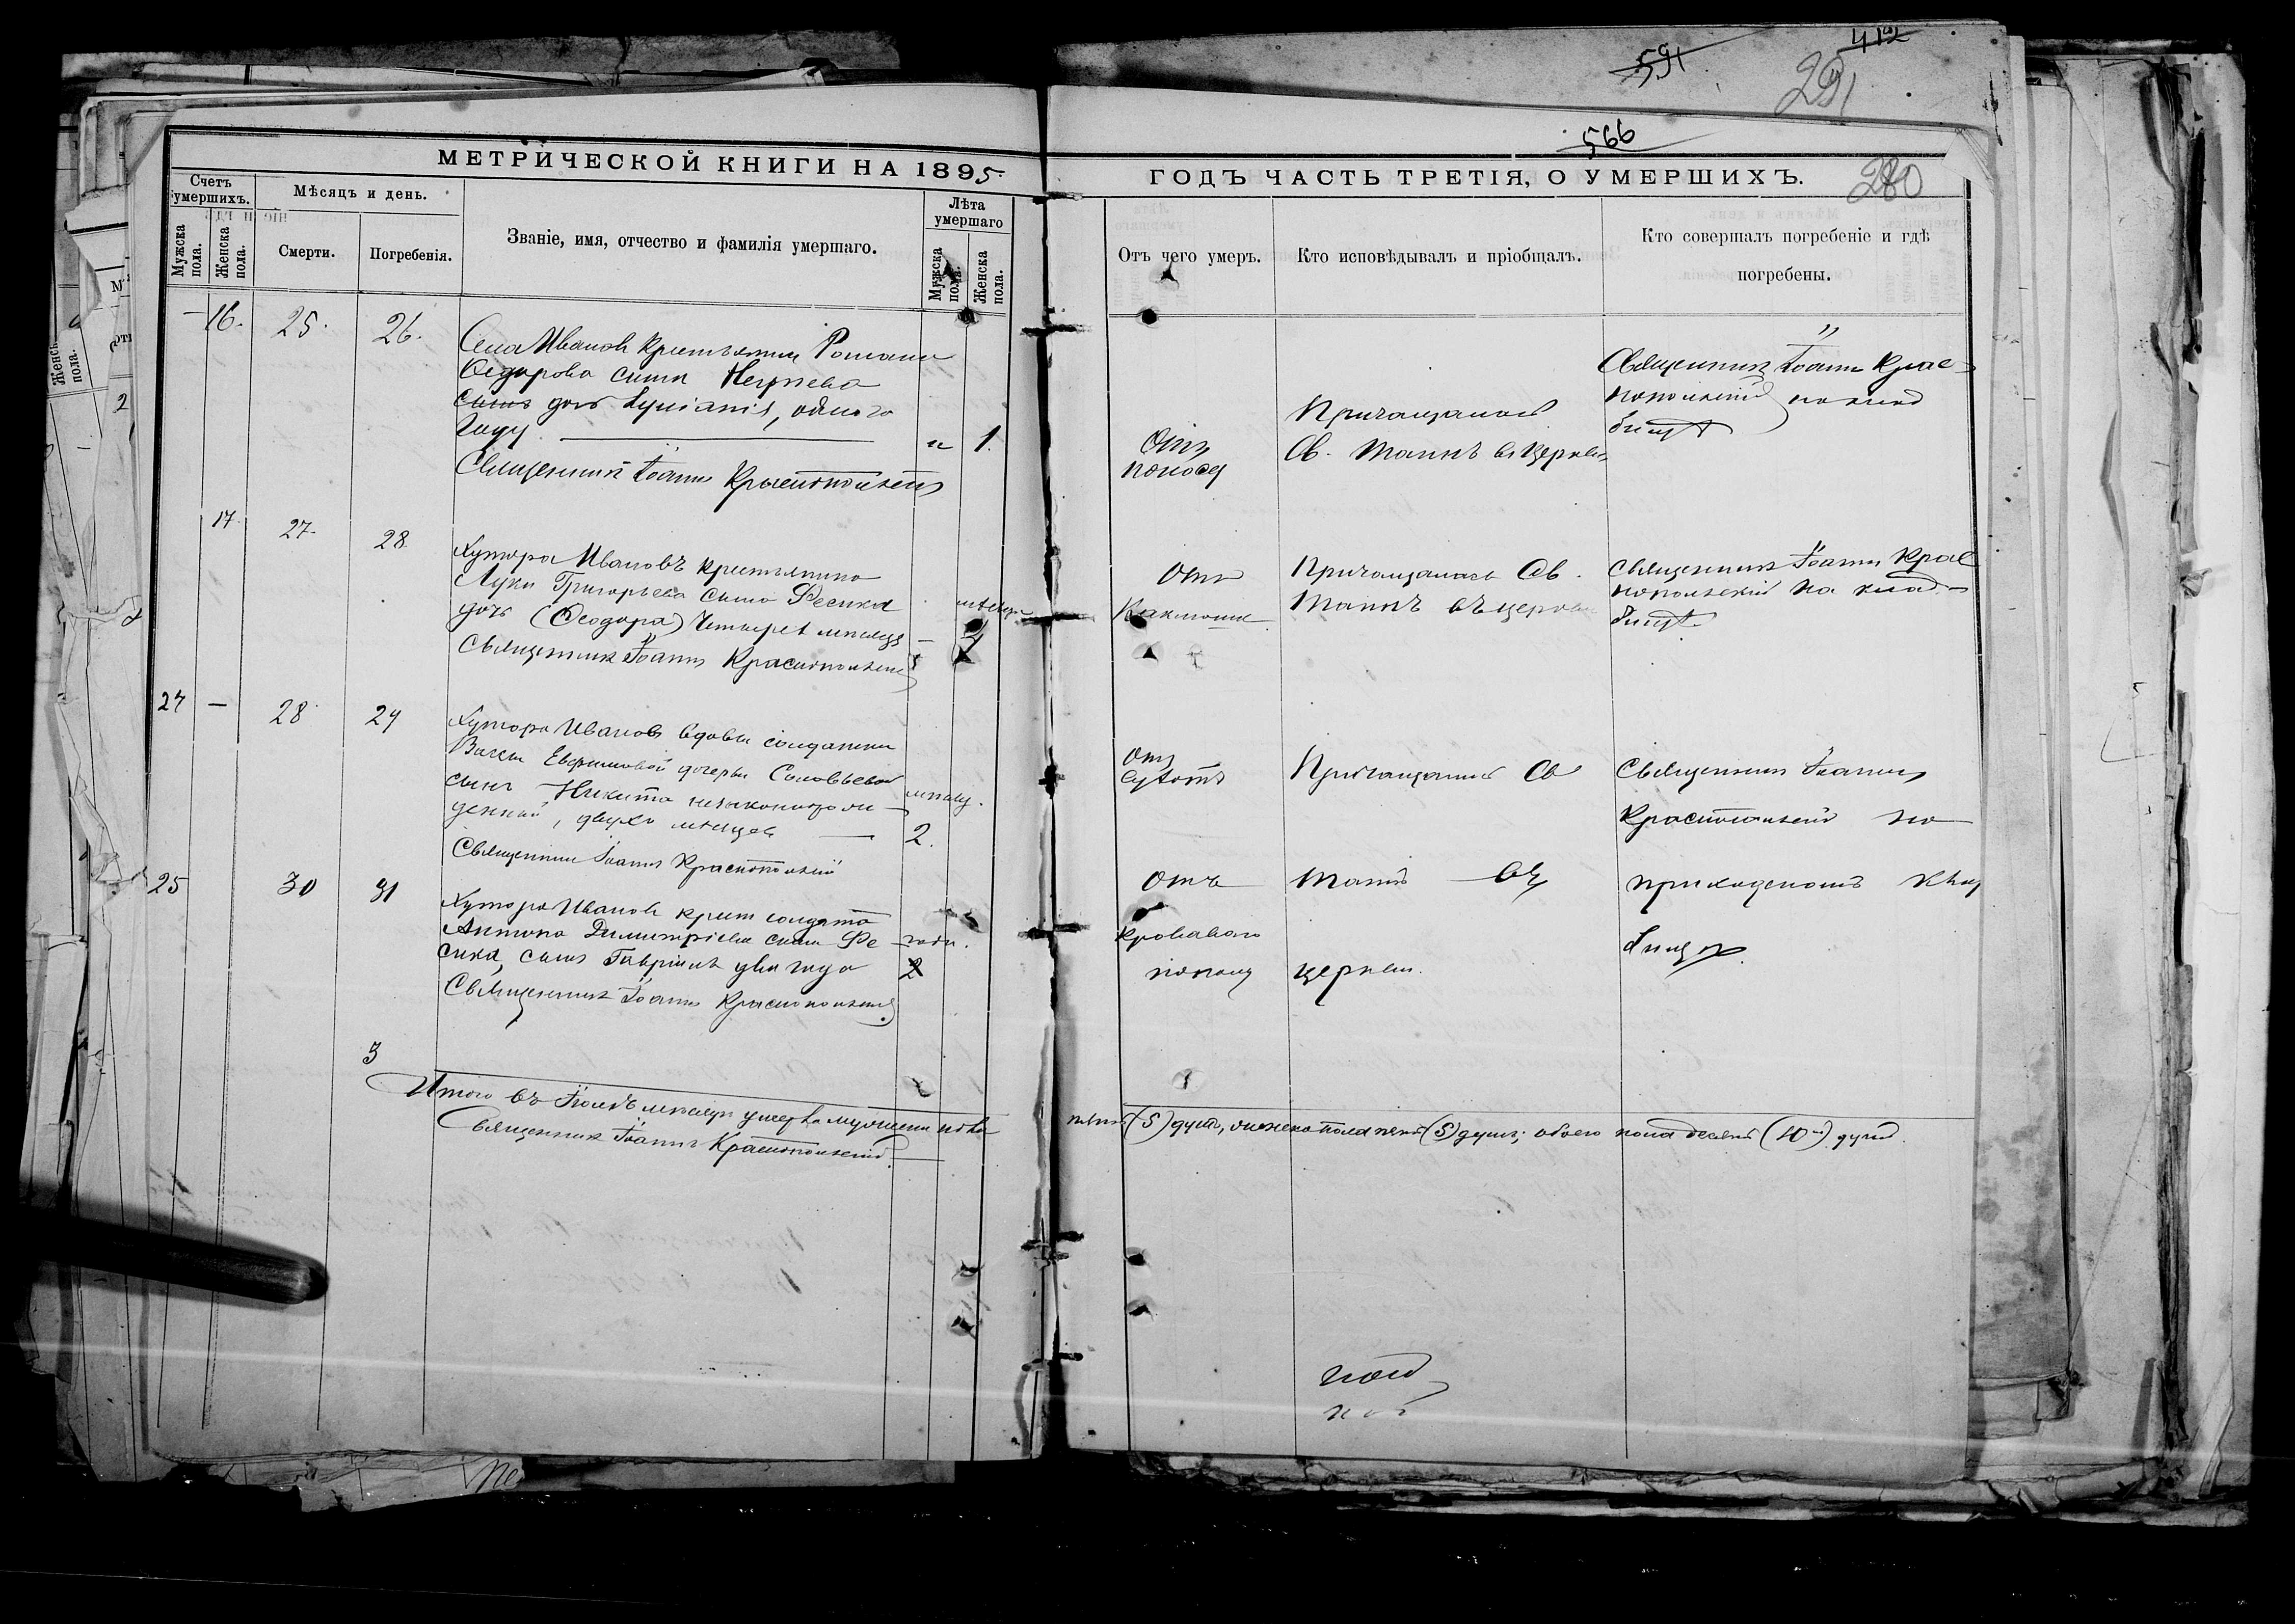 591
412
291
566
280
МЕТРИЧЕСКОЙ КНИГИ НА 1895
ГОДЪ ЧАСТЬ ТРЕТІЯ, О УМЕРШИХЪ.
Счетъ умершихъ.
Мужска пола.
Женска пола.
Мѣсяцъ и день.
Смерти.
Погребенія.
Званіе, имя, отчество и фамилія умершаго.
Лѣта умершаго
Мужска пола.
Женска пола.
Отъ чего умеръ.
Кто исповѣдывалъ и пріобщалъ.
Кто совершалъ погребеніе и гдѣ
погребены.
16.
25.
26.
Села Иванов крестьянина Романа
Федорова сына
сынъ дочь одного
году
1.
Священникъ Іоаннъ Краснопольскій
Отъ
поноса
Причащалась
Св. Таинъ въ церкви
Священникъ Іоаннъ Крас-
нопольскій на клад
бищѣ
17.
27.
28
Хутора Ивановъ крестьянина
Луки Григорьева сына Фесика
дочь (Феодора) Четыре мѣсяца
4
Священникъ Іоаннъ Краснопольскій
Отъ
Причащалась Св.
Таинъ въ церкви
Священникъ Іоаннъ Крас
нопольскій на клад-
бищѣ.
24
28
29
Хутора Ивановъ вдовы солдатки
Евфимовой дочери Соловьевой
сынъ Никита незаконнорож
денный, двухъ мѣсяцевъ
мѣсяц.
2.
Священникъ Іоаннъ Краснопольскій
Отъ
Причащался Св
Таинъ въ
церкви.
Священникъ Іоаннъ
Краснопольскій на
приходскомъ клад
бищѣ
25
30
31
Хутора Иванов крест солдата
Антона Димитріева сына Фе
сика, сынъ Гавріилъ два года
2
Священникъ Іоаннъ Краснопольскій
Отъ
кроваваго
поноса
3
Итого въ Іюлѣ мѣсяцѣ умерло мужеска пола
пять (5) душъ, женска пола пять (5) душъ; обоего пола десять (10) душъ.
Священникъ Іоаннъ Краснопольскій.